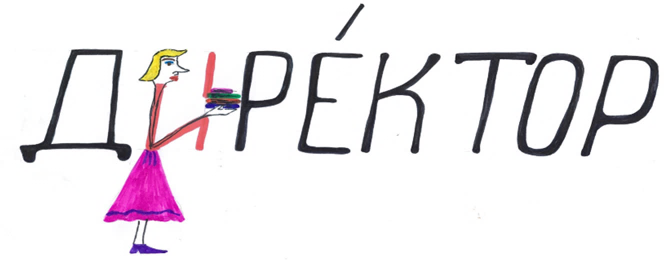 ДИРЕ́КТОР